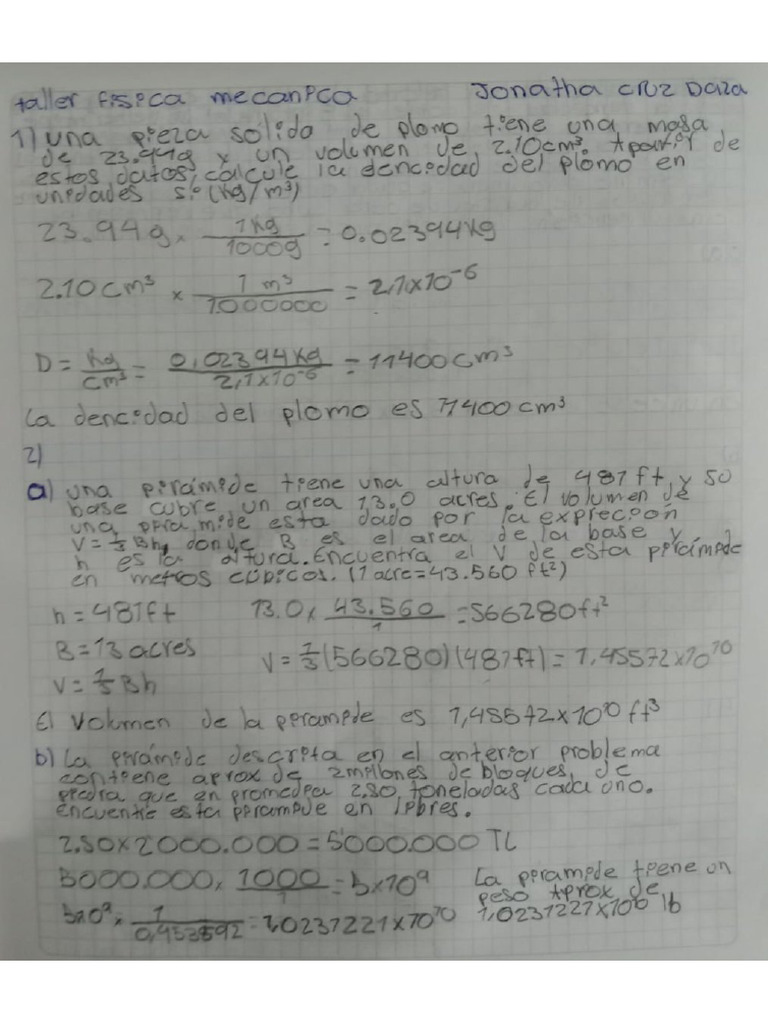 taller física mecanica Jonatha cruz Daza
1) una pieza solido de plomo tiene una masa
de 23.94g y un volumen de 2.10cm³. Apartir de
estos datos, calcule la dencidad del plomo en
unidades si (kg/m³)
23.94g. 1kg/1000g = 0.02394kg
2.10cm³ x 1 m³/1.000000 = 2,1x10⁻⁶
D = kg/cm³ = 0,02394kg/2,1x10⁻⁶ = 11400cm³
la dencidad del plomo es 11400cm³
2)
a) una pirámide tiene una altura de 481ft, y so
base cubre un area 13.0 acres. El volumen de
una piramide esta dado por la exprecion
V=1/3 Bh, donde B es el area de la base y
h es la altura. Encuentra el V de esta pirámide
en metros cúbicos. (1 acre=43.560 ft²)
h = 481ft 13.0 x 43.560/1 = 566280ft²
B = 13 acres V = 1/3 (566280)(481ft) = 1,45572x10¹⁰
V = 1/3 Bh
El volumen de la piramide es 1,45572x10¹⁰ ft³
b) La pirámide descrita en el anterior problema
contiene aprox de 2millones de bloques, de
piedra que en promedia 2.50 toneladas cada uno.
encuentre esta piramide en libres.
2.50x2000.000=5000.000 TL
5000.000x 1000/1 = 5x10⁹ La piramide tiene un
peso Aprox de
5x10⁹x 1/0,453592 = 1,0231221x10¹⁰ 1,0231221x10⁰ lb